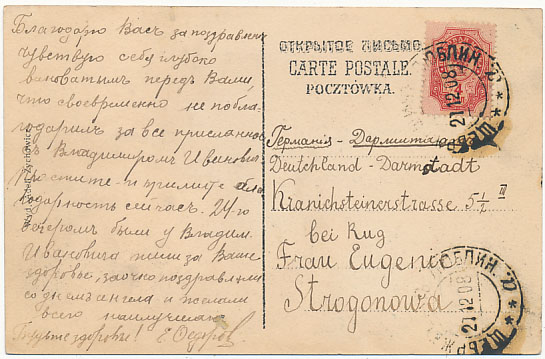 Благодарю Васъ за поздравлен.
Чувствую себя глубоко
виноватымъ передъ Вами
что своевременно не побла-
годарилъ за все присланное
съ Владимиромъ Иванович.
Простите и примите бла
годарность сейчасъ. 24-го
вечеромъ были у Владим.
Ивановича пили за Ваше
здоровье, заочно поздравляли
со днемъ ангела и желали
всего наилучшаго
Будьте здоровы!
ОТКРЫТОЕ ПИСЬМО.
CARTE POSTALE.
POCZTÓWKA.
Германія - Дармштадтъ
Deutschland - Darmstadt
Kranichsteinerstrasse 5½ II
bei Kug
Frau Eugenie
Strogonowa
ЛЮБЛИН.
21 12 08
ЛЮБЛИН.
21 12 08